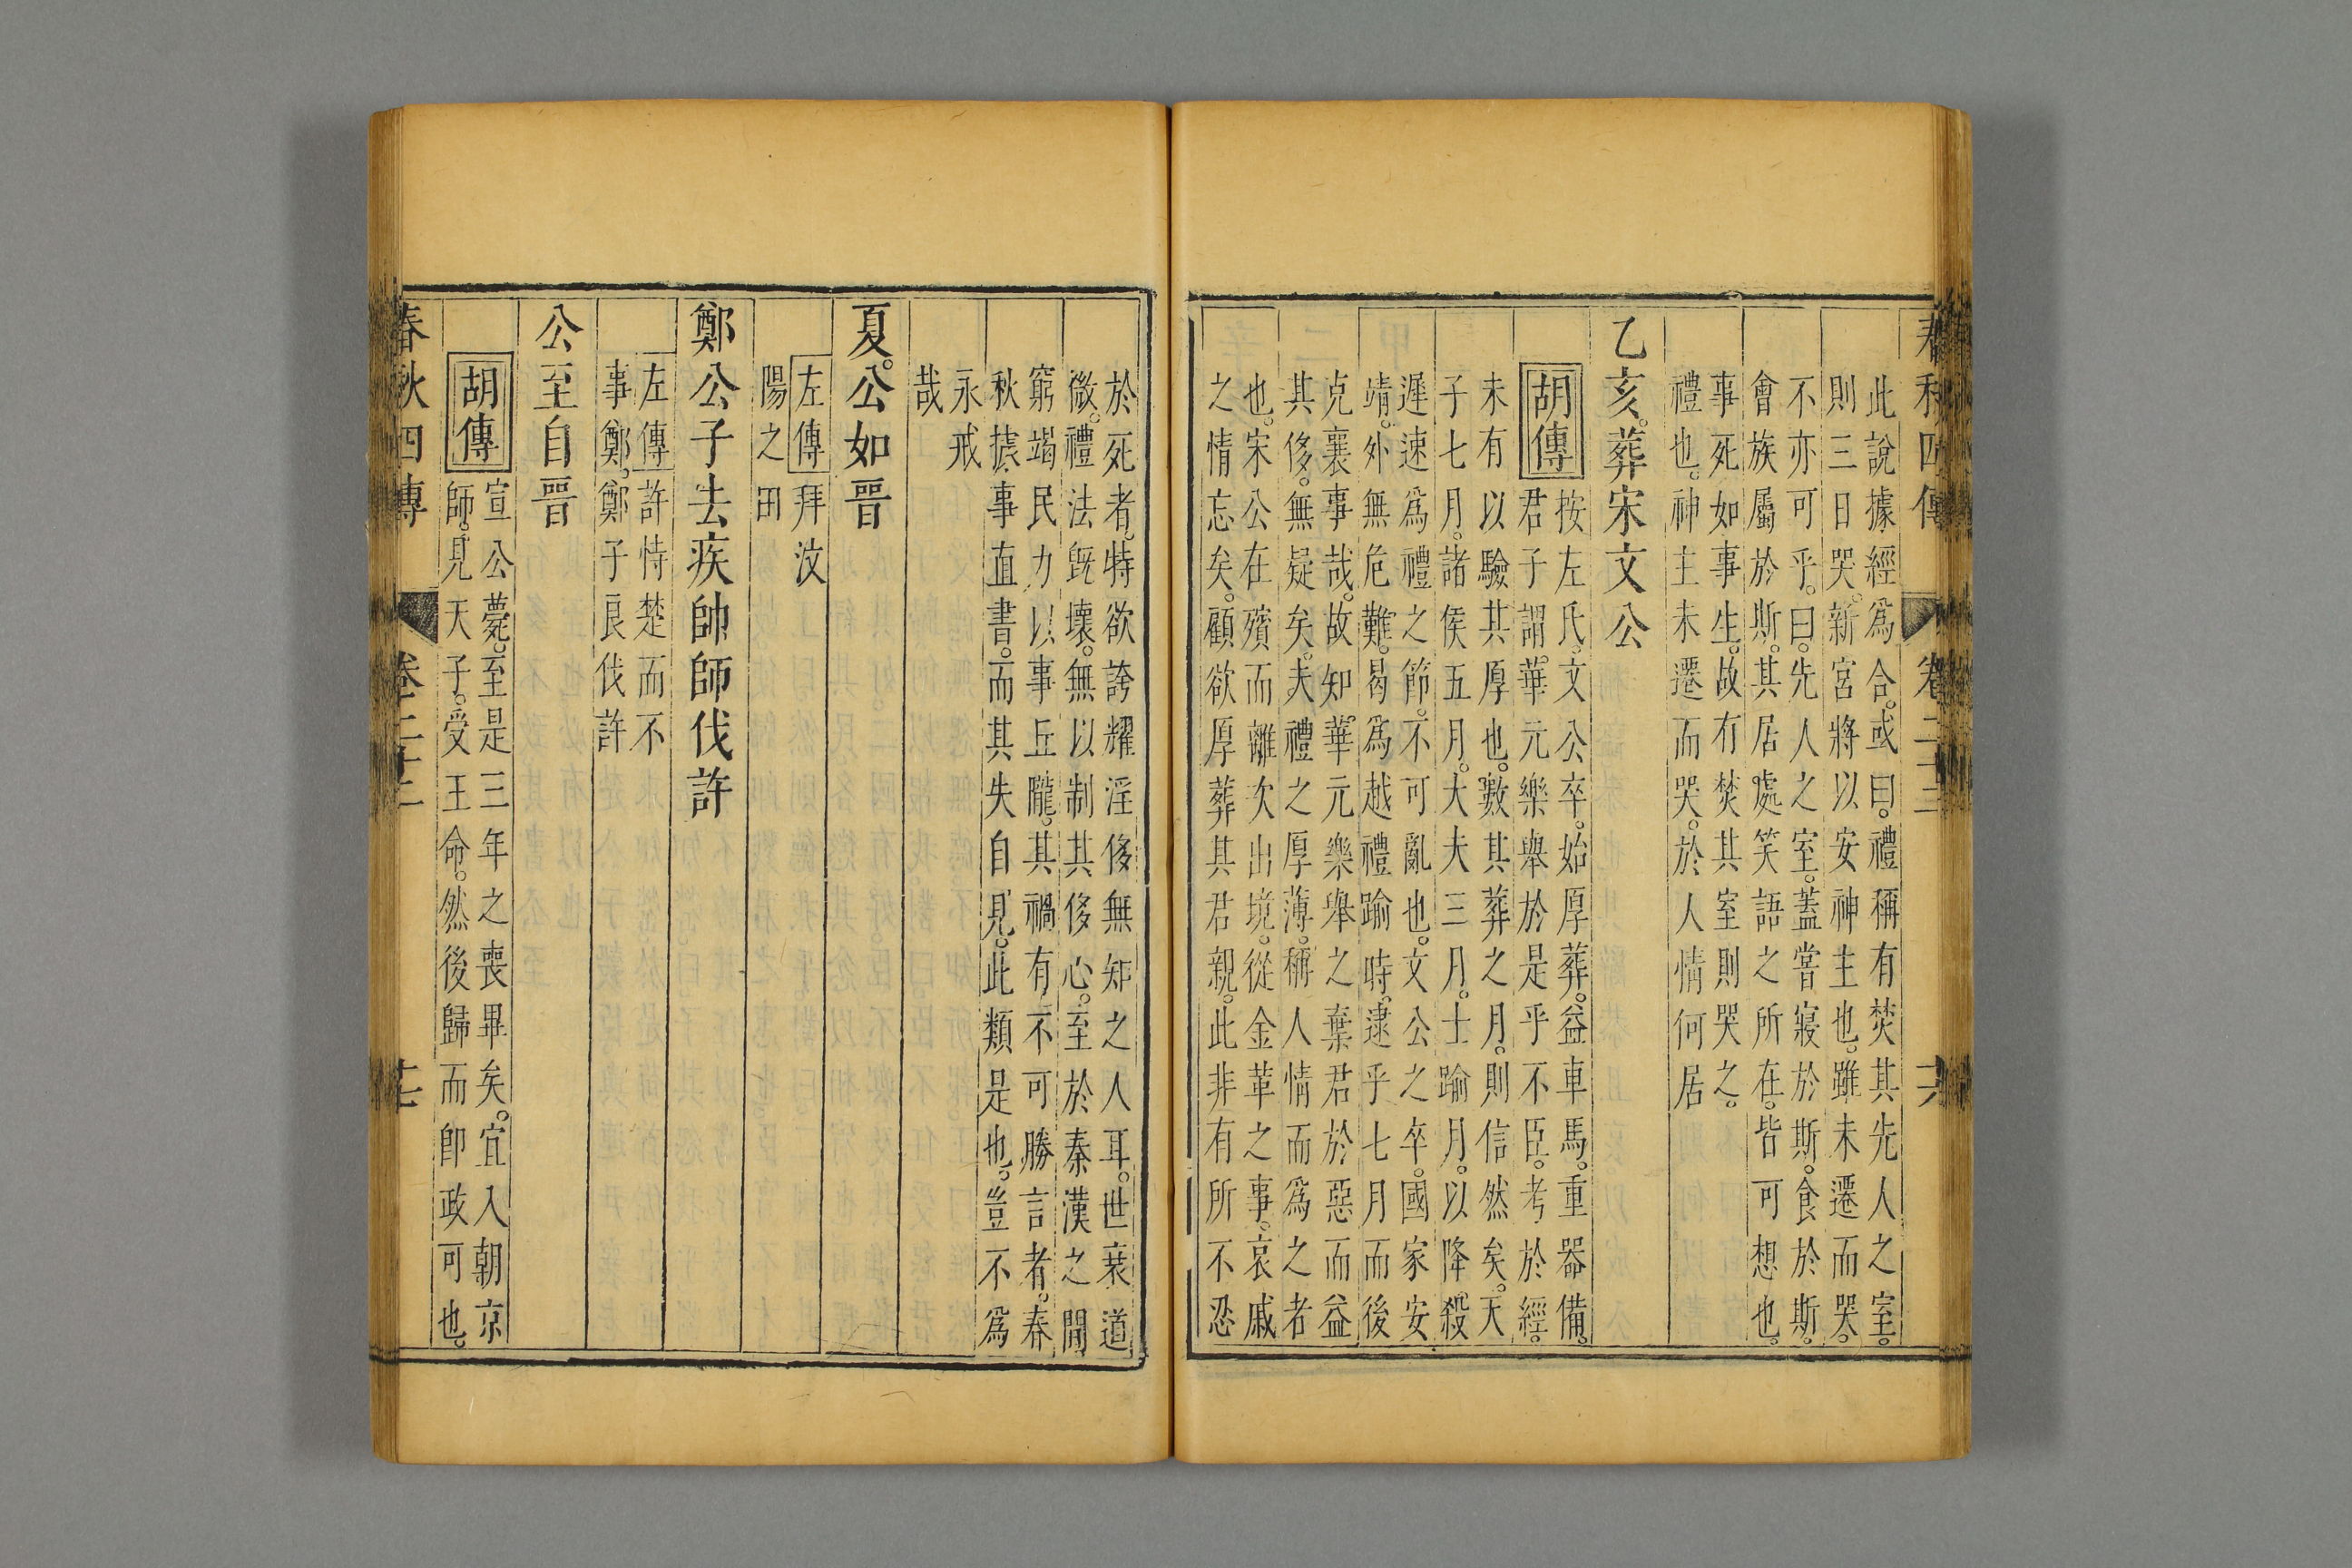 春秋四傳 卷二十三 十六
此說據經爲合。或曰。禮稱有焚其先人之室。
則三日哭。新宮將以安神主也。雖未遷而哭。
不亦可乎。曰。先人之室。蓋嘗寢於斯。食於斯。
會族屬於斯。其居處笑語之所在。皆可想也。
事死如事生。故有焚其室則哭之。
禮也。神主未遷而哭。於人情何居
乙亥。葬宋文公
胡傳
按左氏。文公卒。始厚葬。益車馬。重器備。
君子謂。華元樂舉於是乎不臣。考於經。
未有以驗其厚也。數其葬之月。則信然矣。天
子七月。諸侯五月。大夫三月。士踰月。以降殺
遲速爲禮之節。不可亂也。文公之卒。國家安
靖。外無危難。曷爲越禮踰時。逮乎七月而後
克襄事哉。故知華元樂舉之棄君於惡而益
其侈。無疑矣。夫禮之厚薄。稱人情而爲之者
也。宋公在殯而離次出境。從金革之事。哀戚
之情忘矣。顧欲厚葬其君親。此非有所不忍
於死者。特欲誇耀淫侈無知之人耳。世衰道
微。禮法旣壞。無以制其侈心。至於秦漢之間
窮竭民力以事丘隴。其禍有不可勝言者。春
秋據事直書。而其失自見。此類是也。豈不爲
永戒
哉
夏。公如晉
左傳拜汶
陽之田
鄭公子去疾帥師伐許
左傳許恃楚而不
事鄭。鄭子良伐許
公至自晉
胡傳
宣公薨。至是三年之喪畢矣。宜入朝京
師。見天子。受王命。然後歸而卽政可也。
春秋四傳 卷二十三 十七